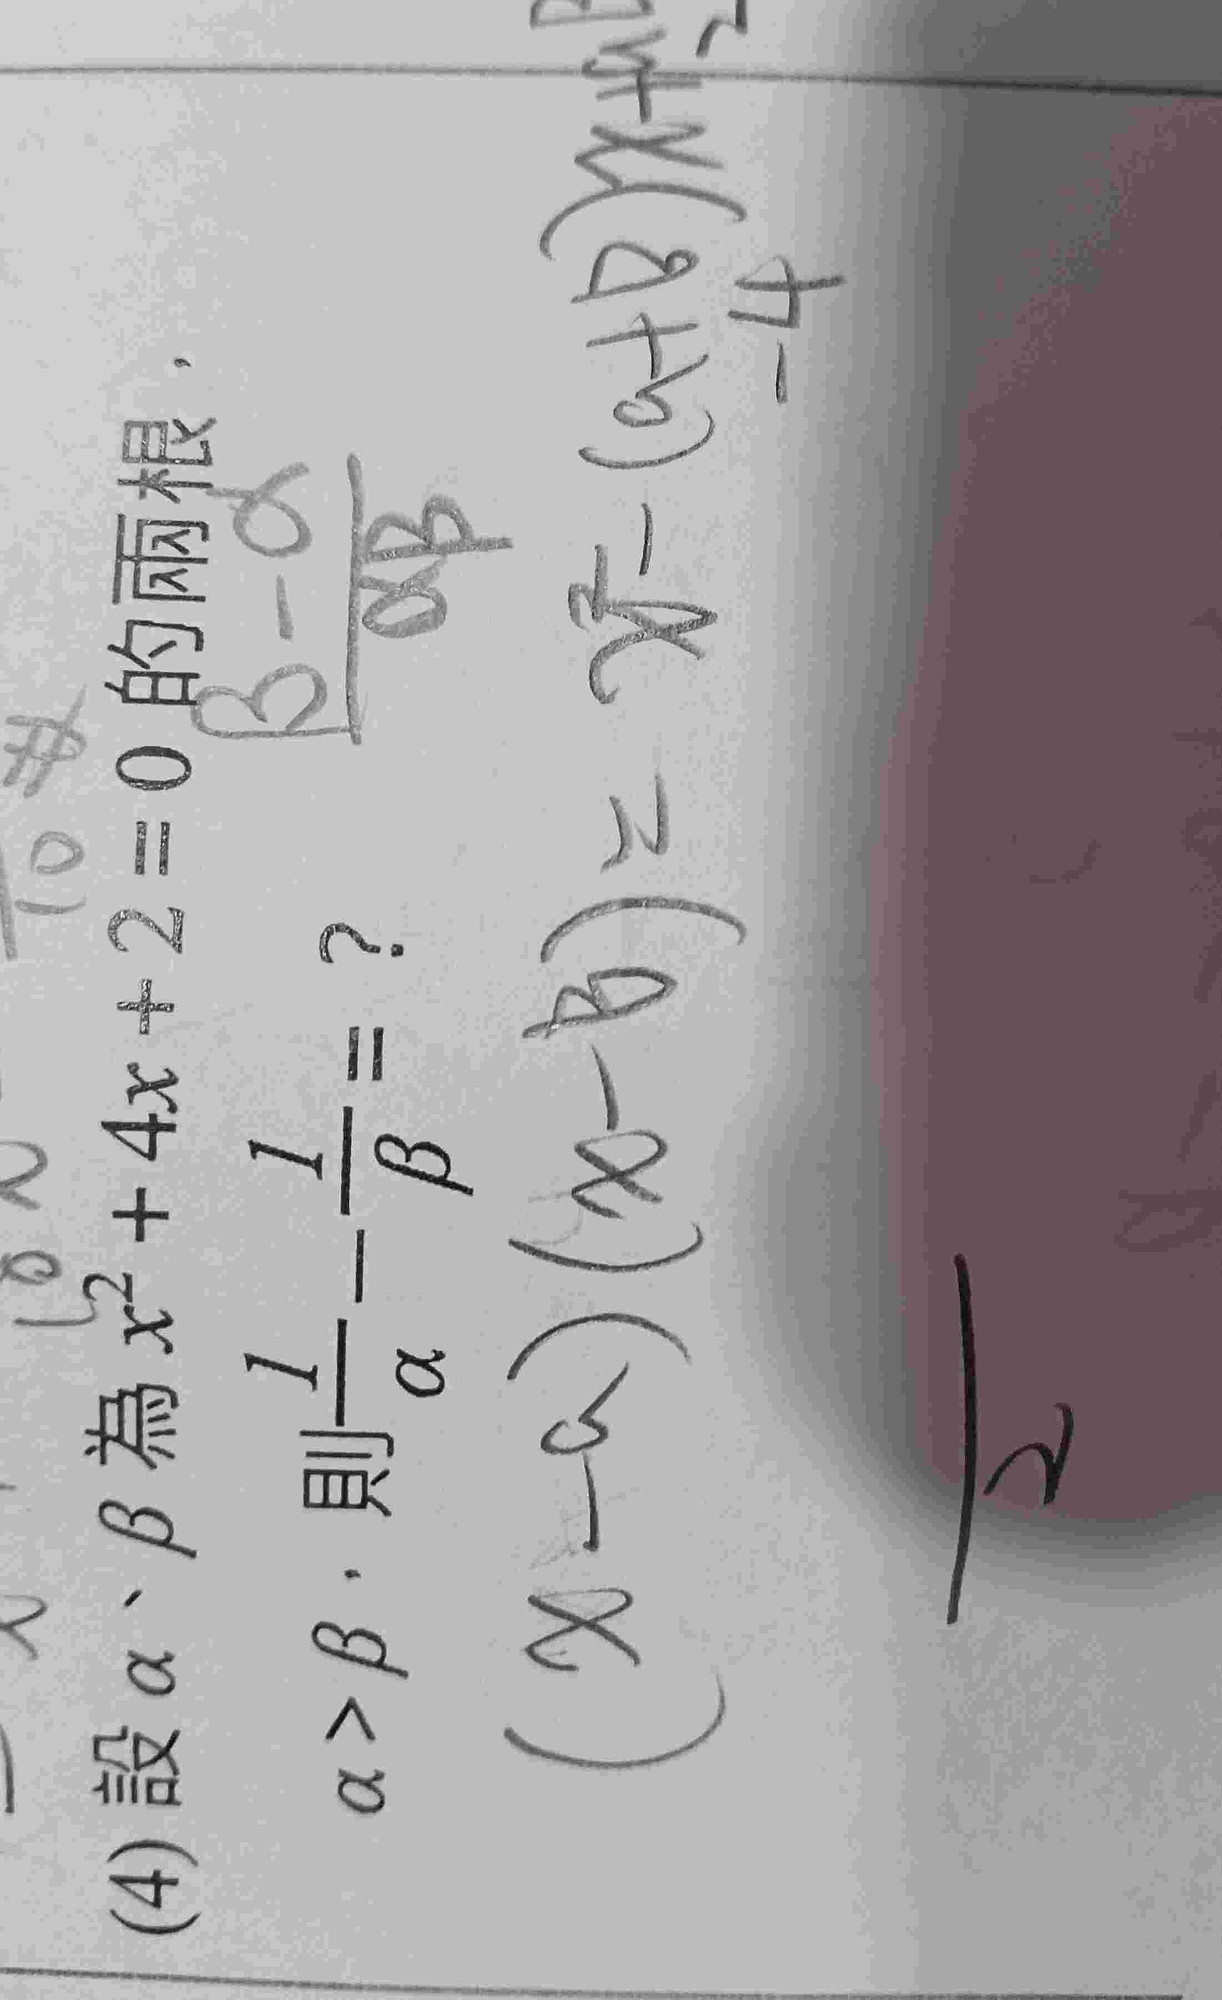 (4) 設 α、β 為 x² + 4x + 2 = 0 的兩根，
β - α
α > β，則 1/α - 1/β = ?
αβ
(x - a)(x - B) = x² - (a+B)x + aB
-4
2
2